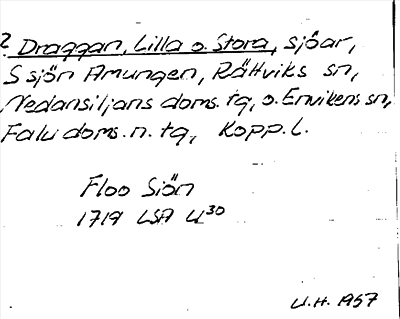 ? Draggan, Lilla o. Stora, sjöar,
S sjön Amungen, Rättviks sn,
Nedansiljans doms. tg, o. Envikens sn,
Falu doms. n. tg, Kopp. l.
Floo Siön
1719 LSA U30
U.H. 1957